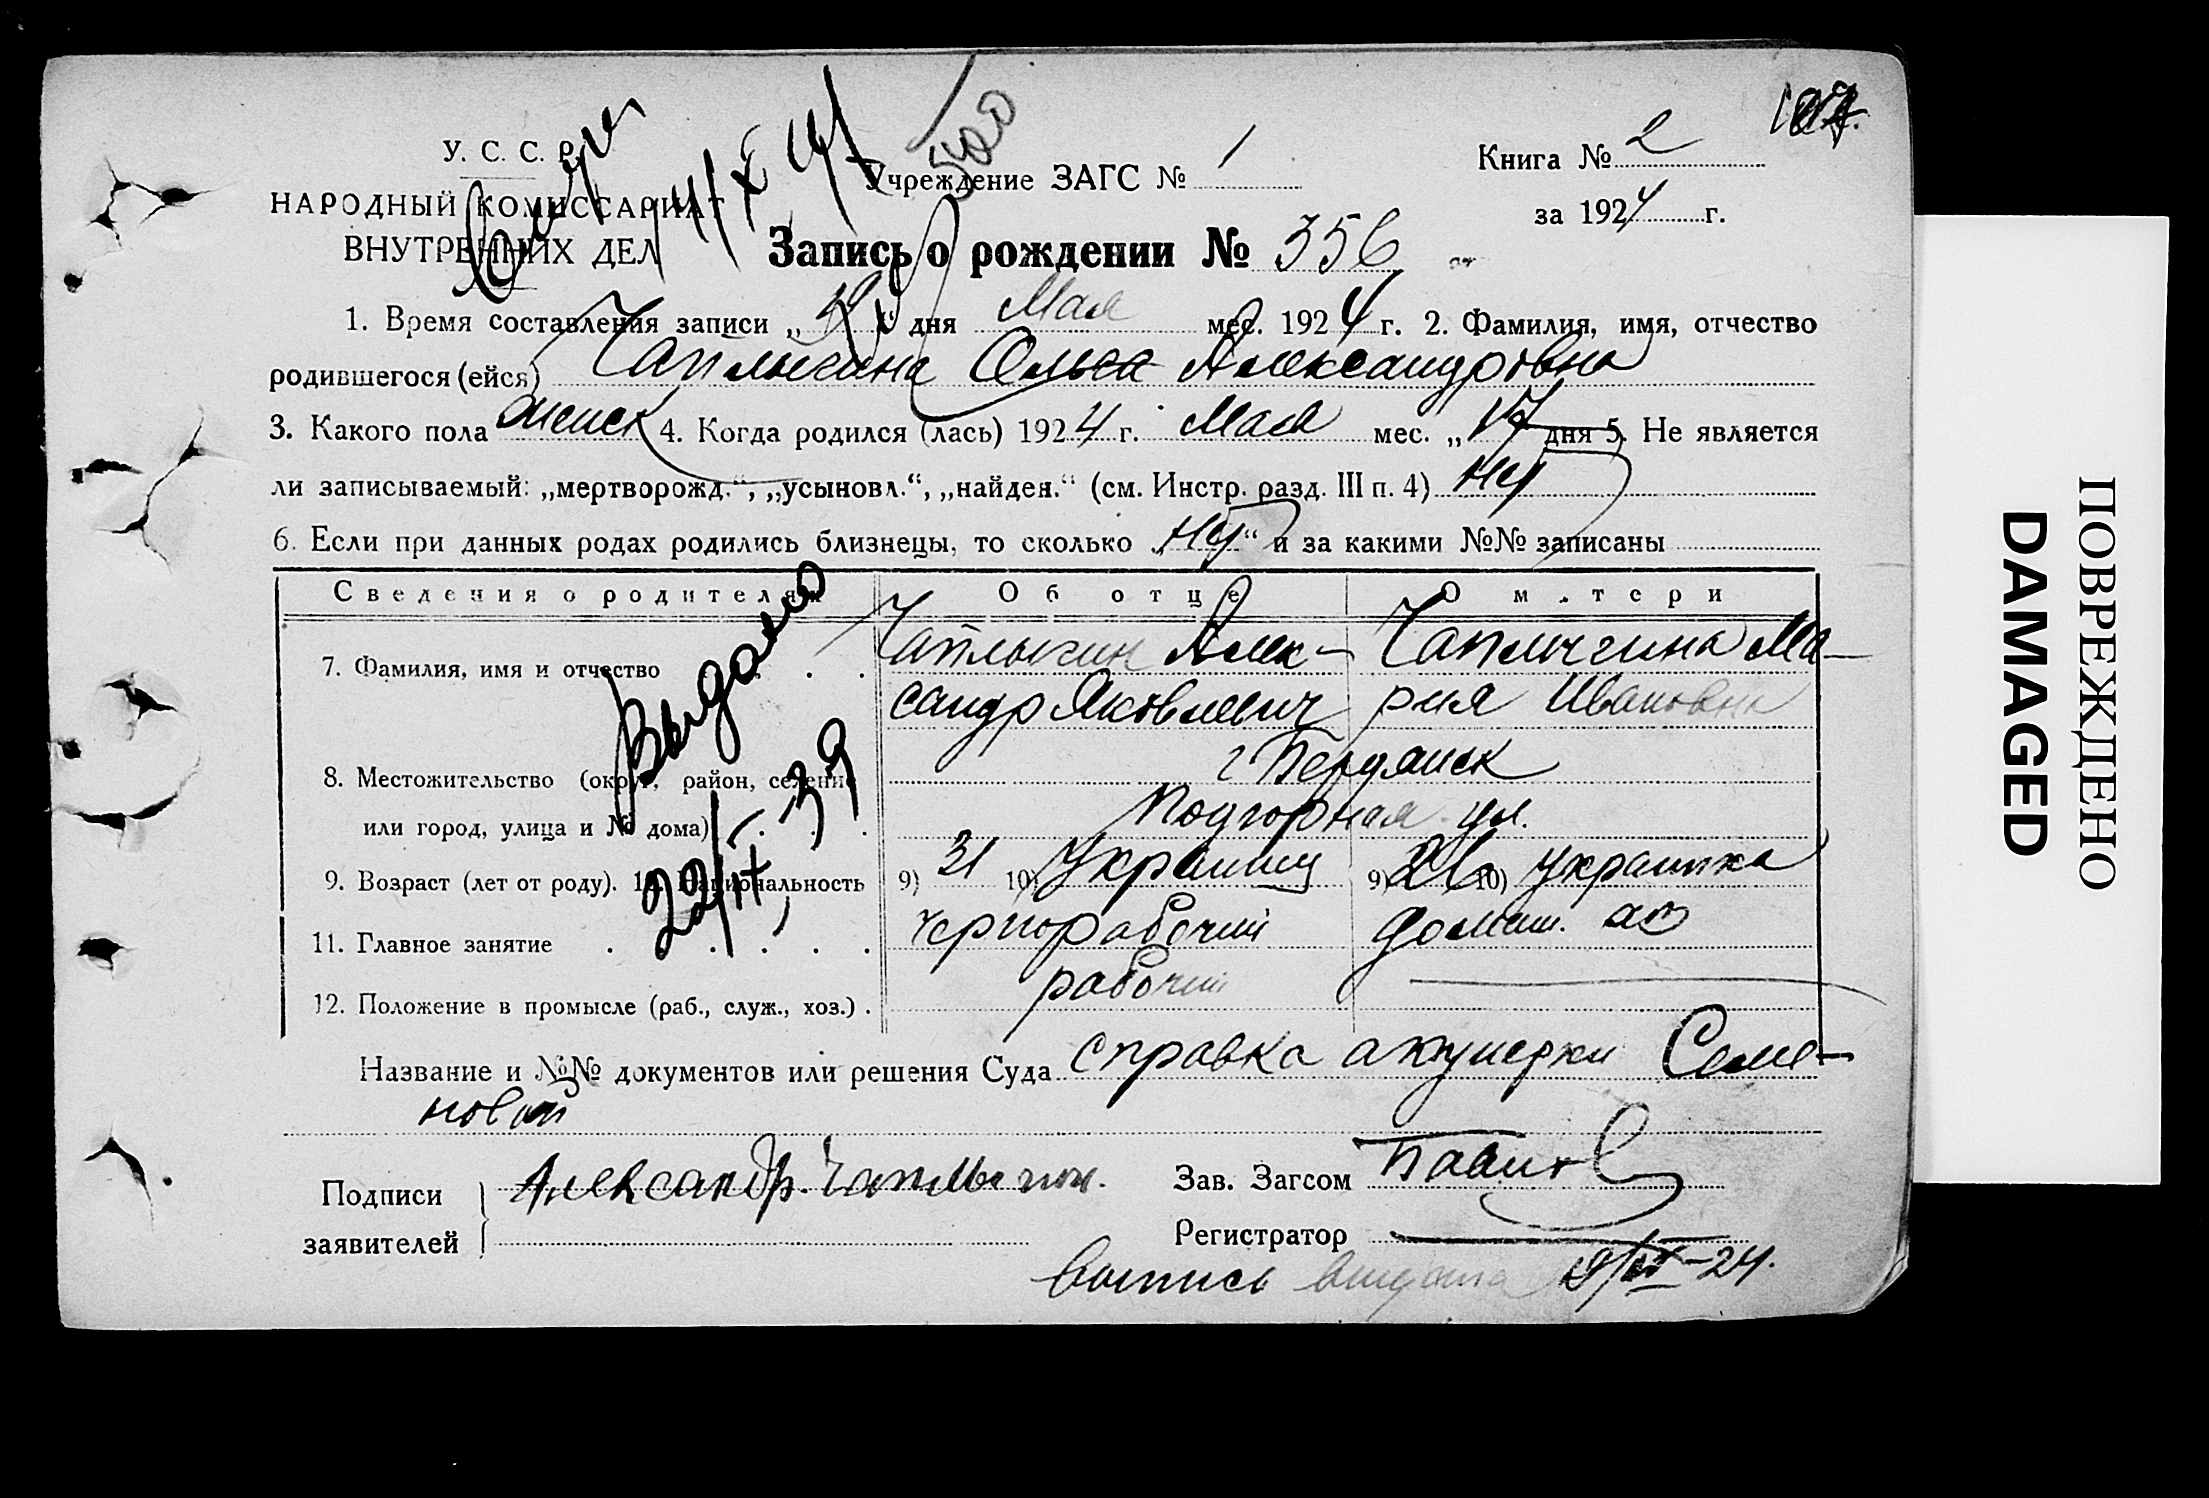 У. С. С. Р.
НАРОДНЫЙ КОМИССАРИАТ
ВНУТРЕННИХ ДЕЛ
Учреждение ЗАГС № 1
Книга № 2
за 1924 г.
Запись о рождении № 356
1. Время составления записи „ “ дня Мая мес. 1924 г. 2. Фамилия, имя, отчество
родившегося (ейся) Чаплыгина Ольга Александровна
3. Какого пола женск 4. Когда родился (лась) 1924 г. Мая мес. „17 дня 5. Не является
ли записываемый: „мертворожд.“, „усыновл.“, „найден.“ (см. Инстр. разд. III п. 4) нет
6. Если при данных родах родились близнецы, то сколько „нет“ и за какими №№ записаны
Сведения о родителях Об отце О м.тери
7. Фамилия, имя и отчество . . Чаплыгин Алек- Чаплыгина Ма-
сандр Яковлевич рия Ивановна
8. Местожительство (округ, район, селение г Бердянск
или город, улица и № дома) . . Подгорная ул.
9. Возраст (лет от роду). 10. Национальность 9) 31 10) Украинец 9) 26 10) украинка
11. Главное занятие . . . . . чернорабочий домаш. хоз
12. Положение в промысле (раб., служ., хоз.) . рабочий
Название и №№ документов или решения Суда справка акушерки Семе-
новой
Подписи заявителей } Александр Чаплыгин.
Зав. Загсом
Регистратор
выпись выдана 9/IX-24.
Выдано
22/IX-39
ПОВРЕЖДЕНО
DAMAGED